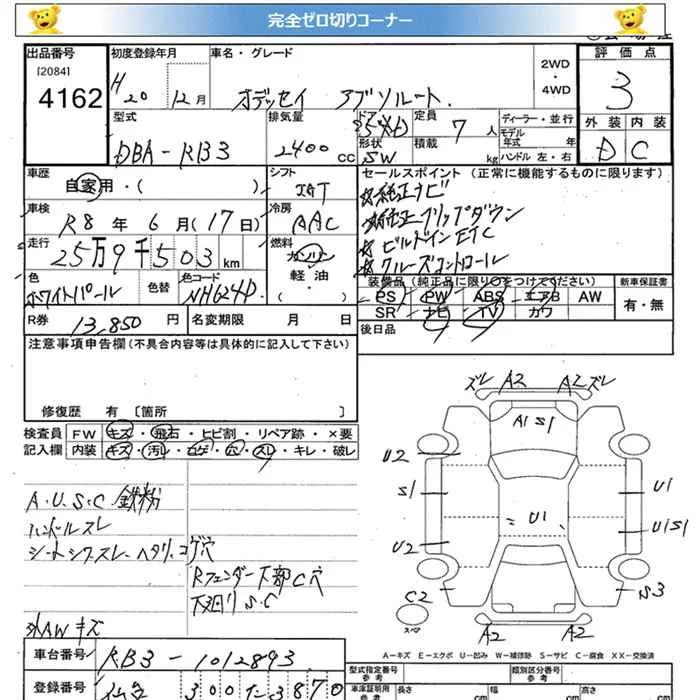 完全ゼロ切りコーナー
出品番号 初度登録年月 車名・グレード 評価点
[2084]
4162 H20 12月 オデッセイ アブソルート 2WD・4WD 3
型式 排気量 ドア 定員 ディーラー・並行 外装 内装
DBA-RB3 2400cc 5 形状 SW 7人 積載 kg モデル年式 年 ハンドル 左・右 D C
車歴 自家用・( ) シフト IAT セールスポイント (正常に機能するものに限ります)
☆純正ナビ
☆純正フリップダウン
☆ビルドインETC
☆クルーズコントロール
車検 R8年6月(17日) 冷房 AAC
走行 25万9千503km 燃料 ガソリン 軽・油 ・( )
色 ホワイトパール 色替 色コード NH624P
装備品 (純正品に限り○をつけてください) 新車保証書
PS PW ABS エアB AW 有・無
SR ナビ TV カワ
R券 13,850円 名変期限 月 日 後日品
注意事項申告欄 (不具合内容等は具体的に記入して下さい)
修復歴 有 [箇所 ]
検査員 FW キズ・飛石・ヒビ割・リペア跡・×要
記入欄 内装 キズ・汚レ・コゲ・穴・スレ・キレ・破レ
A.U.S.C 鉄粉
ハンドルスレ
シートシワスレ・ヘタリ、コゲ穴
Rフェンダー下部C穴
下廻りS.C
外AWキズ
ズレ A2 A2ズレ
A1S1
U2
S1 U1
U1
U1S1
U2
C2 S3
スペア
A2 A2
A-キズ E-エクボ U-凹み W-補修跡 S-サビ C-腐食 XX-交換済
車台番号 RB3-1012893
型式指定番号 参考 類別区分番号 参考
登録番号 仙台 300 3870
車庫証明用 参考 長さ cm 幅 cm 高さ cm